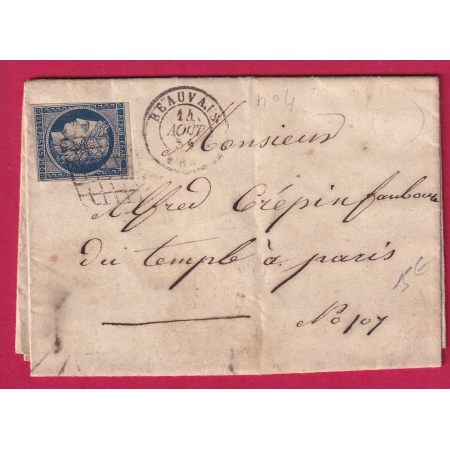 BEAUVAIS
14
AOUT
n°4
Monsieur
Alfred Crépin faubourg
du temple à paris
No 107
15€